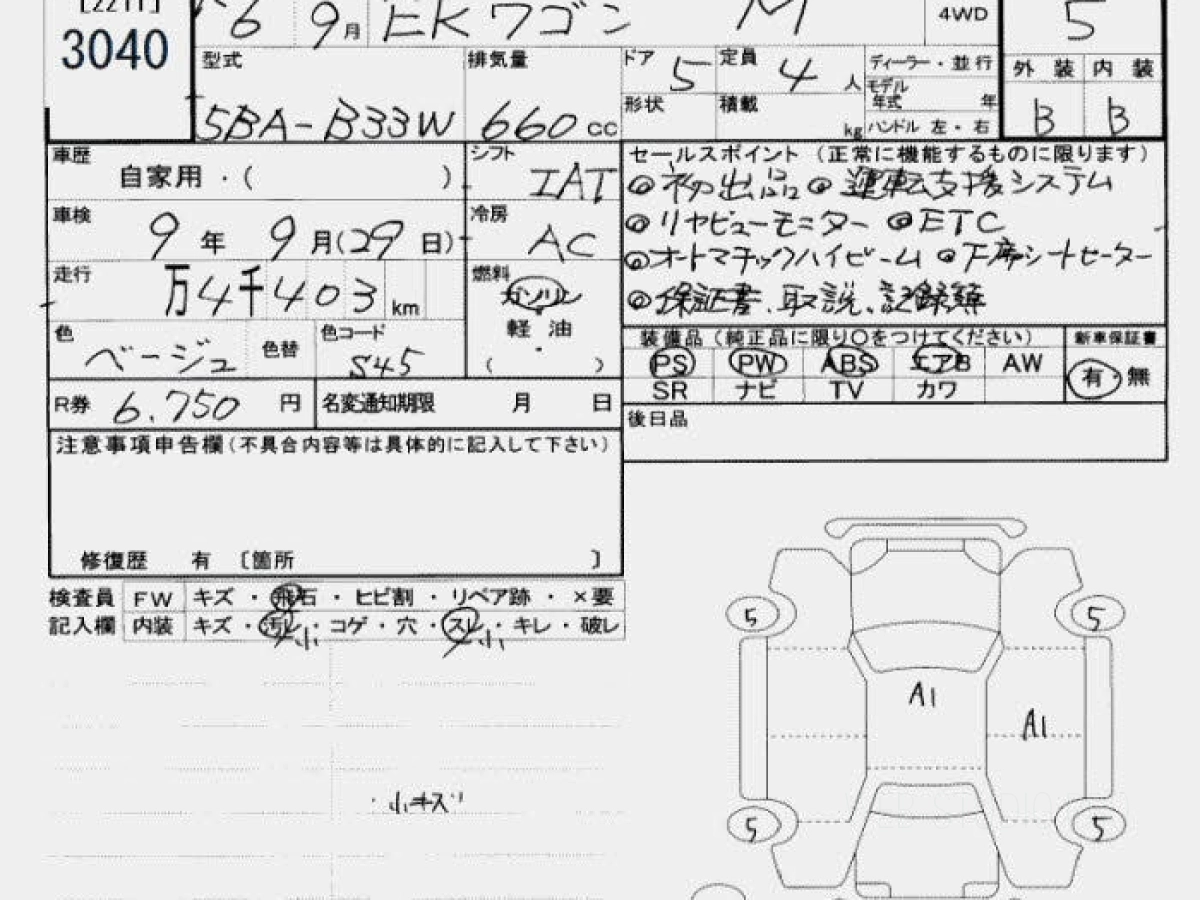 [2211]
3040
6 9月 EKワゴン M 4WD 5
型式 5BA-B33W
排気量 660cc
ドア 5 定員 4人
形状 積載 kg
ディーラー・並行
モデル年式 年
ハンドル 左・右
外装 内装
B B
車歴 自家用・( )
シフト IAT
車検 9年 9月(29日)
冷房 AC
走行 万4千403km
燃料 ガソリン
軽油
・
( )
色 ベージュ 色替
色コード S45
R券 6.750円
名変通知期限 月 日
セールスポイント(正常に機能するものに限ります)
◎初出品 ◎運転支援システム
◎リヤビューモニター ◎ETC
◎オートマチックハイビーム ◎下席シートヒーター
◎保証書、取説、記録簿
装備品(純正品に限り○をつけてください) 新車保証書
PS PW ABS エアB AW 有・無
SR ナビ TV カワ
後日品
注意事項申告欄(不具合内容等は具体的に記入して下さい)
修復歴 有 〔箇所 〕
検査員 FW キズ・飛石・ヒビ割・リペア跡・×要
記入欄 内装 キズ・汚レ・コゲ・穴・スレ・キレ・破レ
小 小
・小キズ
5 5
A1
A1
5 5